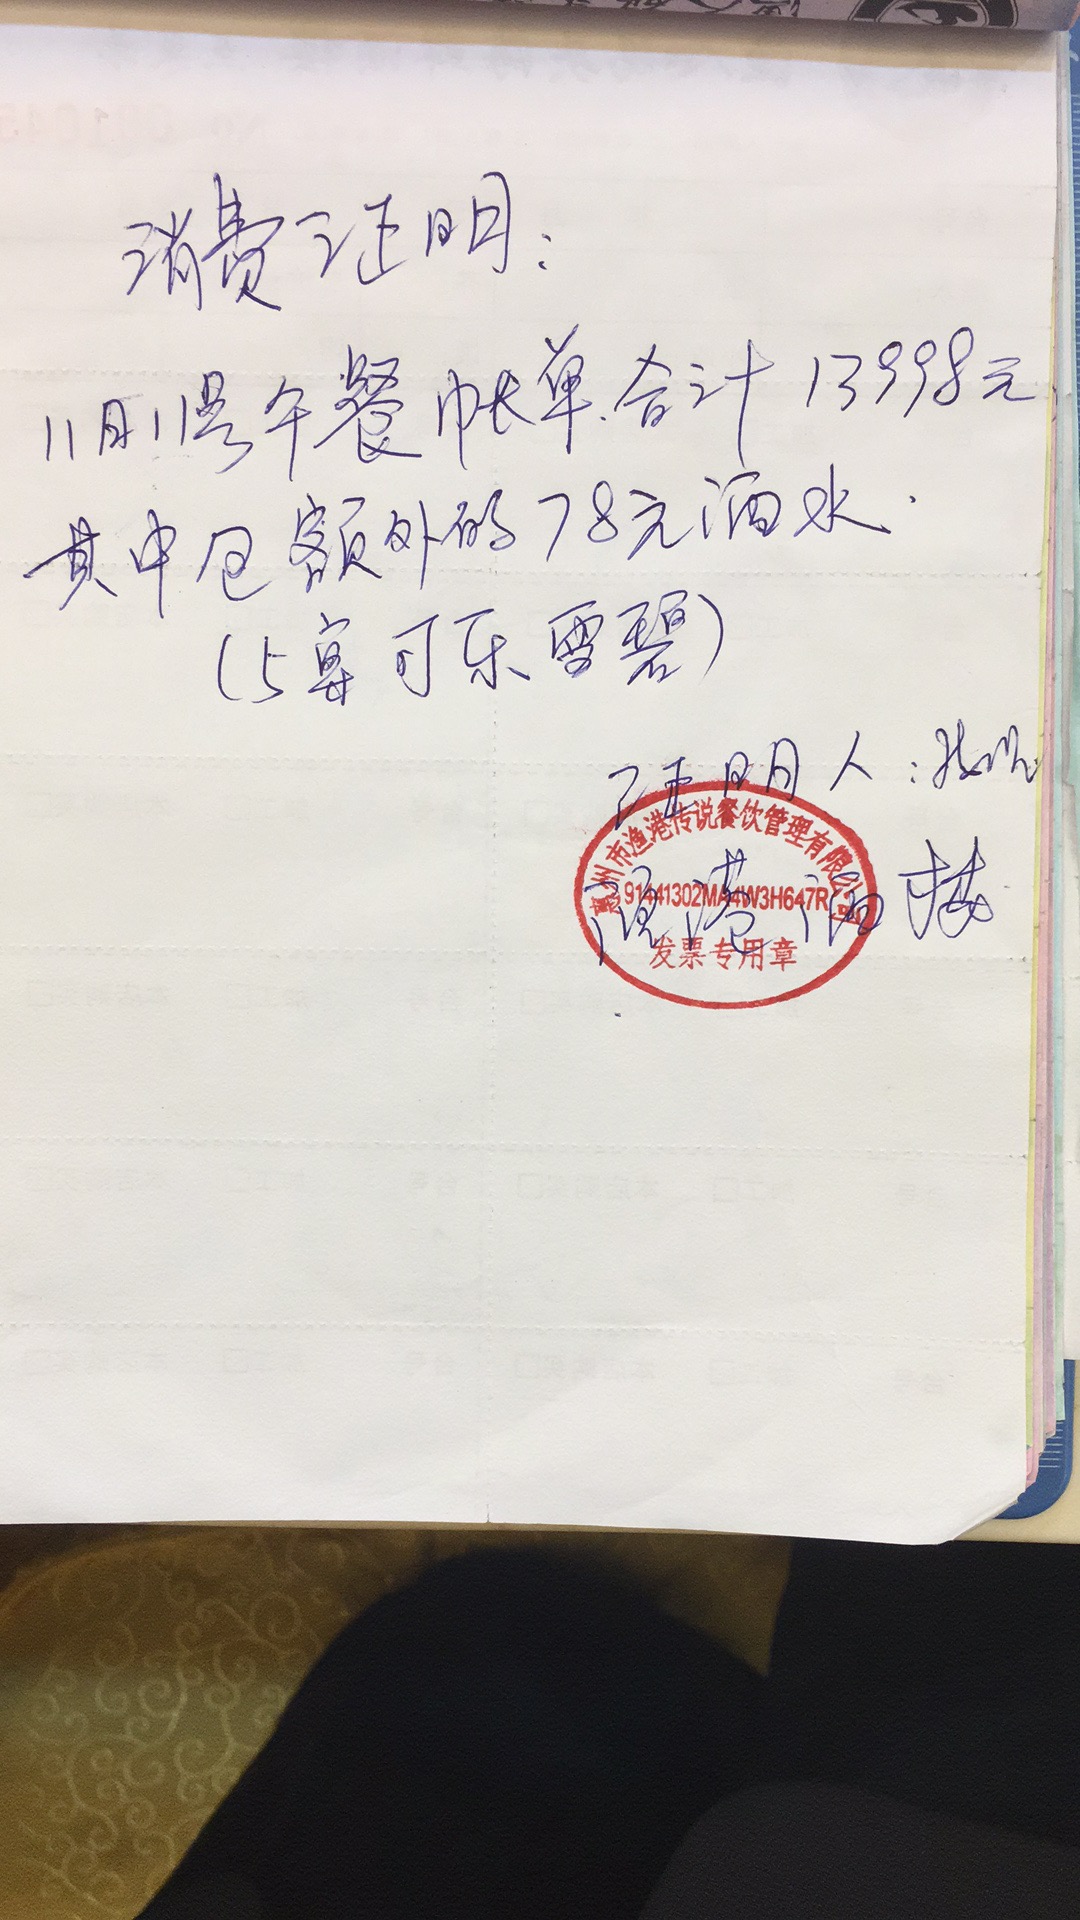 消费证明：
11月11号午餐帐单合计13998元
其中包额外的78元酒水.
(5箪可乐雪碧)
证明人：
渔港酒楼
惠州市渔港传说餐饮管理有限公司
91441302MA4W3H647R
发票专用章